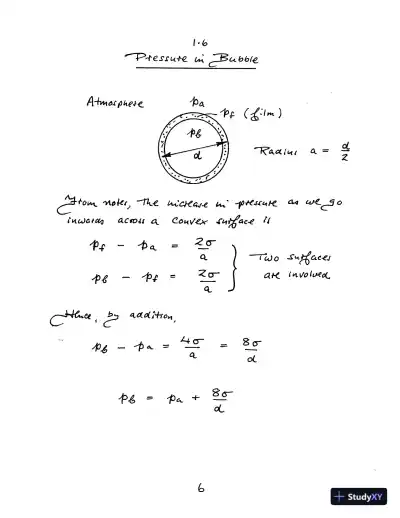 1.6
Pressure in Bubble
Atmosphere
pa
pf (film)
pb
d
Radius a = d/2
From notes, the increase in pressure as we go
inwards across a convex surface is
pf - pa = 2σ/a
pb - pf = 2σ/a
Two surfaces
are involved
Hence, by addition,
pb - pa = 4σ/a = 8σ/d
pb = pa + 8σ/d
6
StudyXY